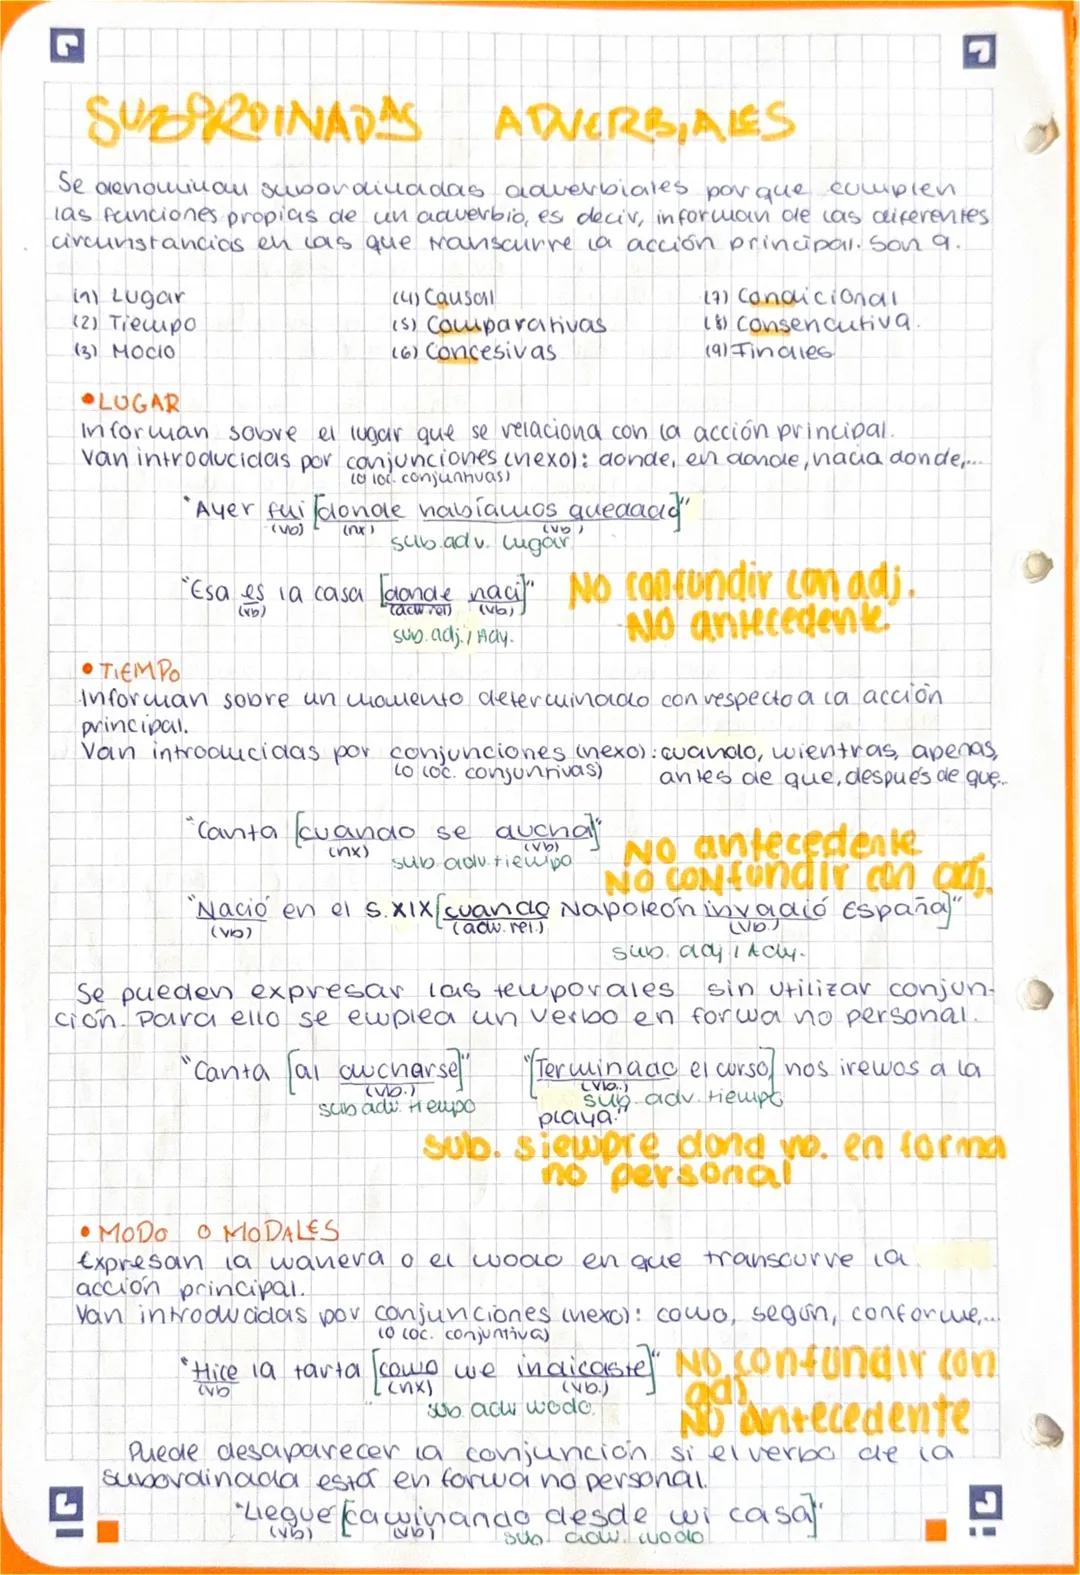 SUBORDINADAS ADVERBIALES
Se denominan subordinadas adverbiales porque cumplen
las funciones propias de un adverbio, es decir, informan de las diferentes
circunstancias en las que transcurre la acción principal. Son 9.
(1) Lugar (4) Causal (7) Condicional
(2) Tiempo (5) Comparativas (8) Consencutiva.
(3) Modo (6) Concesivas (9) Finales
• LUGAR
Informan sobre el lugar que se relaciona con la acción principal.
Van introducidas por conjunciones (nexo): donde, en donde, hacia donde,...
(o loc. conjuntivas)
"Ayer fui [donde habíamos quedado]"
(vb) (nx) (vb)
sub. adv. lugar
"Esa es la casa [donde nací]" NO confundir con adj.
(vb) (adv. rel) (vb)
NO antecedente
sub. adj. / Ady.
• TIEMPO
Informan sobre un momento determinado con respecto a la acción
principal.
Van introducidas por conjunciones (nexo): cuando, mientras, apenas,
(o loc. conjuntivas) antes de que, después de que...
"Canta [cuando se ducha]"
(nx) (vb)
NO antecedente
sub. adv. tiempo
NO confundir con adj.
"Nació en el s.XIX [cuando Napoleón invadió España]"
(vb) (adv. rel.) (vb.)
sub. adj / Ady.
Se pueden expresar las temporales sin utilizar conjun-
ción. Para ello se emplea un verbo en forma no personal.
"Canta [al ducharse]" "[Terminado el curso] nos iremos a la
(vb.) (vb.)
sub adv. tiempo sub. adv. tiempo
playa."
sub. siempre dond vb. en forma
no personal
• MODO O MODALES
Expresan la manera o el modo en que transcurre la
acción principal.
Van introducidas por conjunciones (nexo): como, según, conforme,...
(o loc. conjuntiva)
"Hice la tarta [como me indicaste]" NO confundir con
(vb (nx) (vb.) adj
sub. adv. modo. NO antecedente
Puede desaparecer la conjunción si el verbo de la
subordinada está en forma no personal.
"Llegué [caminando desde mi casa]"
(vb) (vb) sub. adv. modo